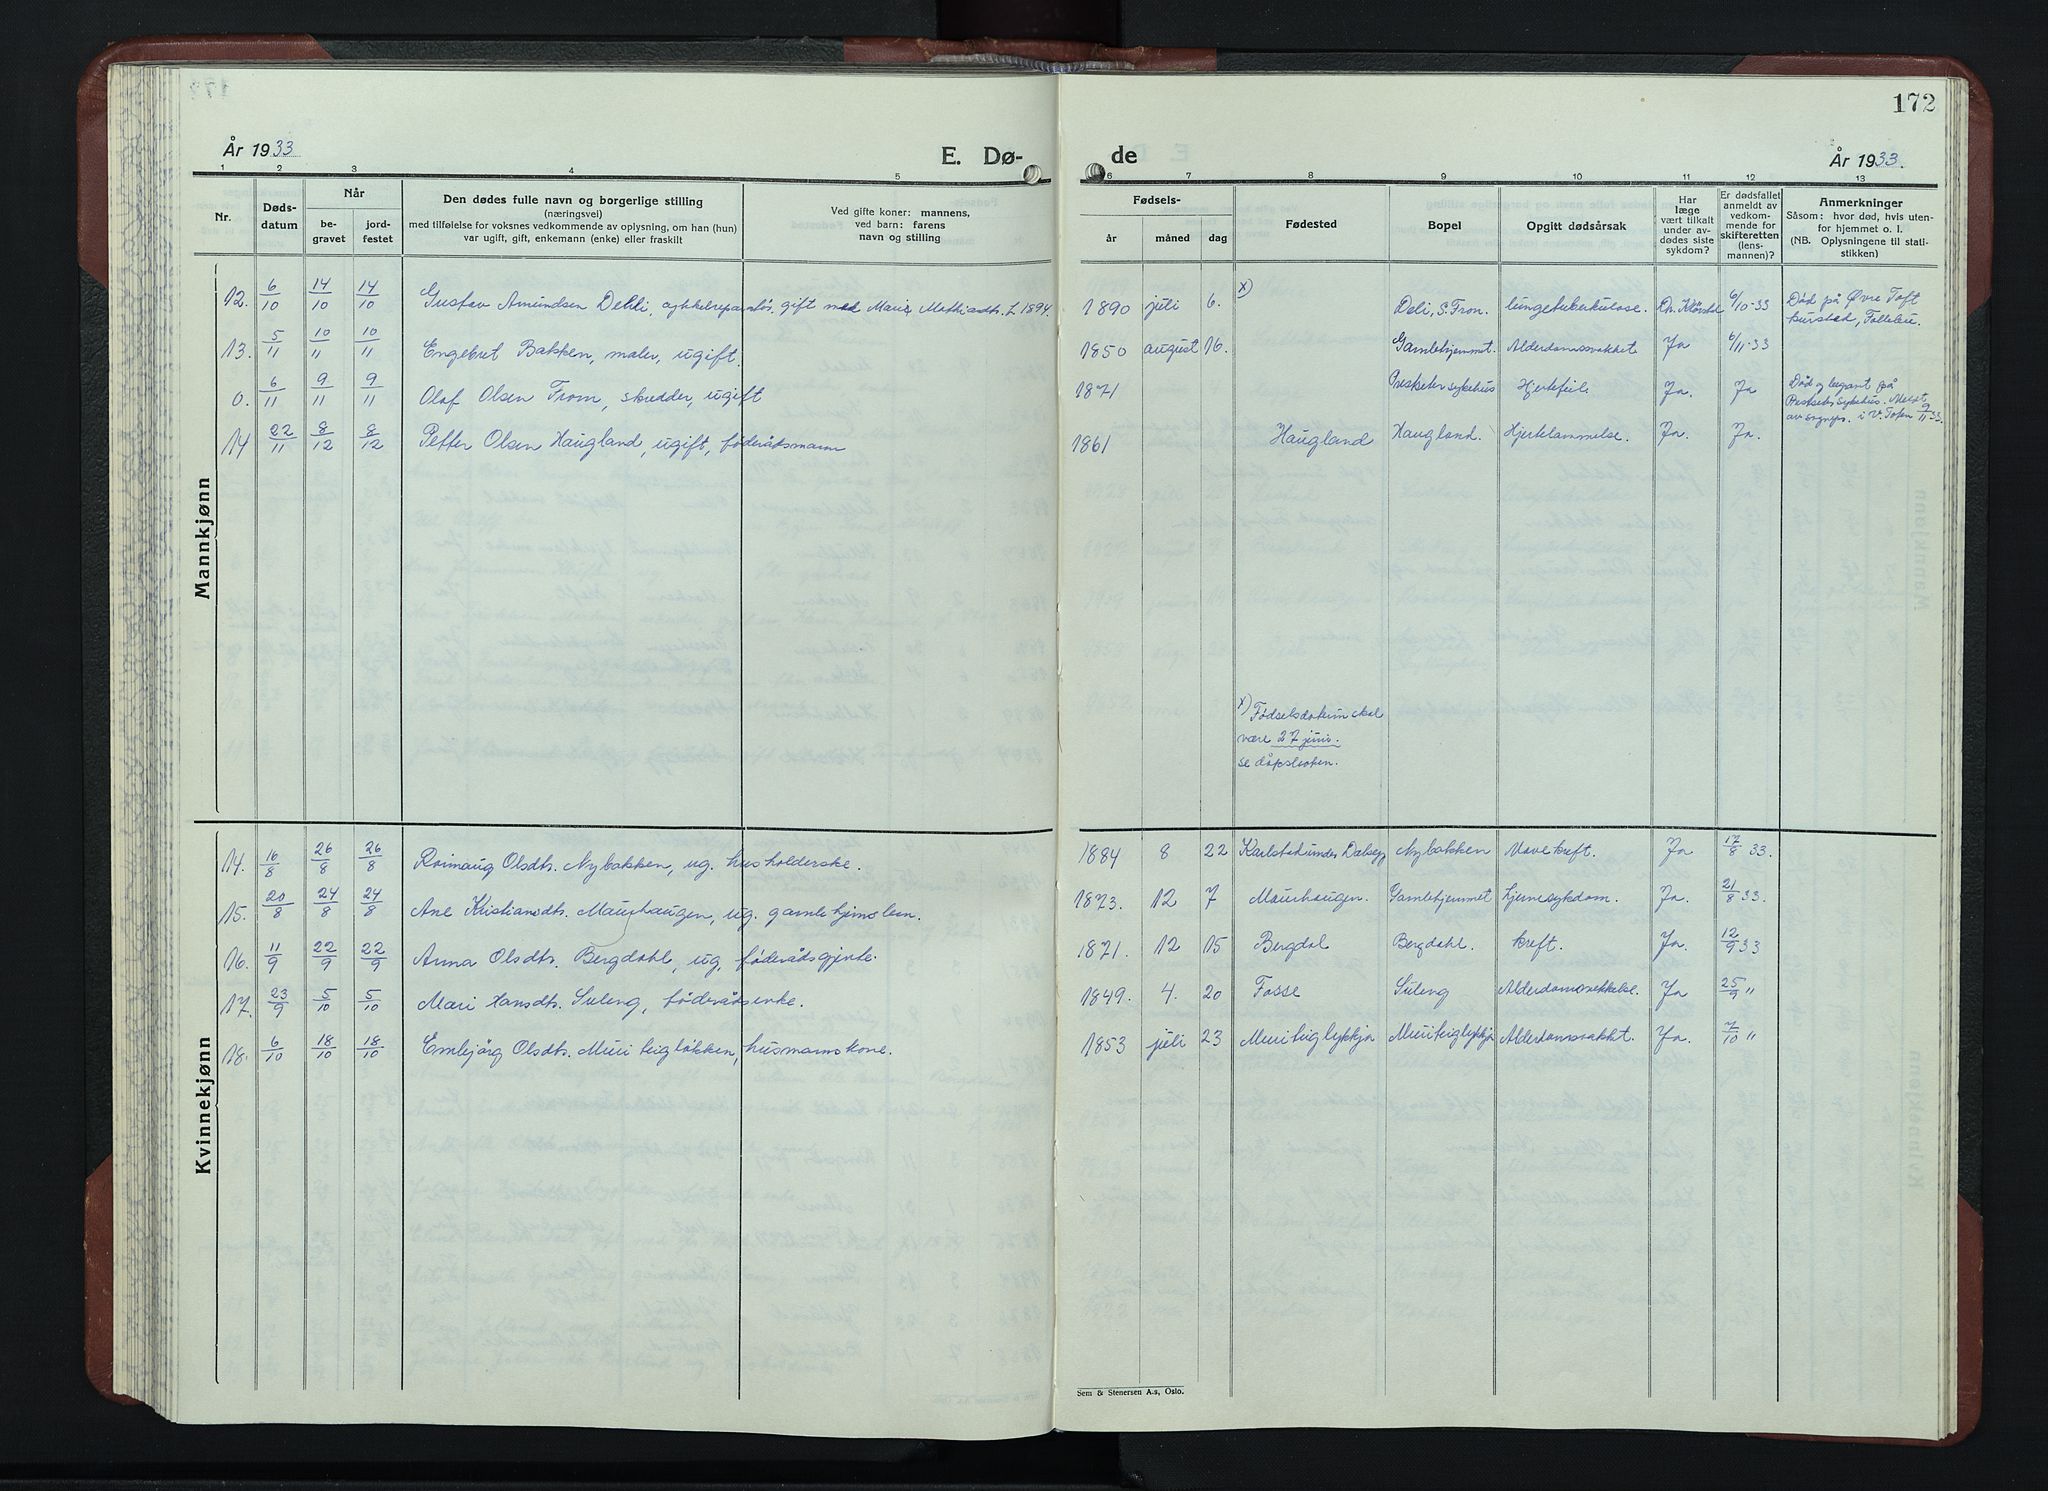 172
År 1933
E. Dø-
de
År 1933.
1 2 3 4 5 6 7 8 9 10 11 12 13
Nr.
Døds-
datum
Når
be-
gravet
jord-
festet
Den dødes fulle navn og borgerlige stilling
(næringsvei)
med tilføielse for voksnes vedkommende av oplysning, om han (hun)
var ugift, gift, enkemann (enke) eller fraskilt
Ved gifte koner: mannens,
ved barn: farens
navn og stilling
Fødsels-
år måned dag
Fødested
Bopel
Opgitt dødsårsak
Har
læge
vært tilkalt
under av-
dødes siste
sykdom?
Er dødsfallet
anmeldt av
vedkom-
mende for
skifteretten
(lens-
mannen)?
Anmerkninger
Såsom: hvor død, hvis uten-
for hjemmet o. l.
(NB. Oplysningene til stati-
stikken)
Mannkjønn
12. 6/10 14/10 14/10 Gustav Amundsen Dehli, cykkelreparatør, gift med Marie Mathiasdtr. f. 1894. 1890 juli 6. x) Deli, S. Fron. lungetuberkulose. 6/10-33 Død på Øvre Toft
kursted, Follebu.
13. 5/11 10/11 10/11 Engebret Bakken, maler, ugift. 1850 august 16. Gamlehjemmet. Alderdomssvakhet Ja 6/11-33
0. 6/11 9/11 9/11 Olaf Olsen From, skredder, ugift 1871 sykehus Hjertefeil. Ja. Ja Død og begravet på
sykehus. Meldt
av sognpr. i V. Toten 9/11 33.
14 22/11 8/12 8/12 Petter Olsen Haugland, ugift, føderådsmann 1861 Haugland Haugland. Hjertelammelse. Ja. Ja.
x) Fødselsdatum skal
være 27 juni.
se dåpsboken.
Kvinnekjønn
14. 16/8 26/8 26/8 Roimaug Olsdtr. Nybakken, ug. husholderske. 1884 8 22 Karlstad under Dalsegg Nybakken Mavekreft. Ja 17/8 33.
15. 20/8 24/8 24/8 Ane Kristiansdtr. Maurhaugen, ug. gamlehjemslem. 1873. 12 7 Maurhaugen. Gamlehjemmet Hjernesykdom. Ja. 21/8 33.
16. 11/9 22/9 22/9 Anna Olsdtr. Bergdahl, ug, føderådsgjente. 1871. 12 15 Bergdal Bergdahl. kreft. Ja. 12/9 33
17. 23/9 5/10 5/10 Mari Hansdtr. Suleng, føderådsenke. 1849. 4. 20 Fosse Suleng Alderdomssvekkelse. Ja 25/9 "
18. 6/10 18/10 18/10 Embjørg Olsdtr. Muriteigløkken, husmannskone. 1853 juli 23 Muriteiglykkja Muriteiglykkja Alderdomssvakhet. Ja. 7/10 "
Sem & Stenersen A.s, Oslo.